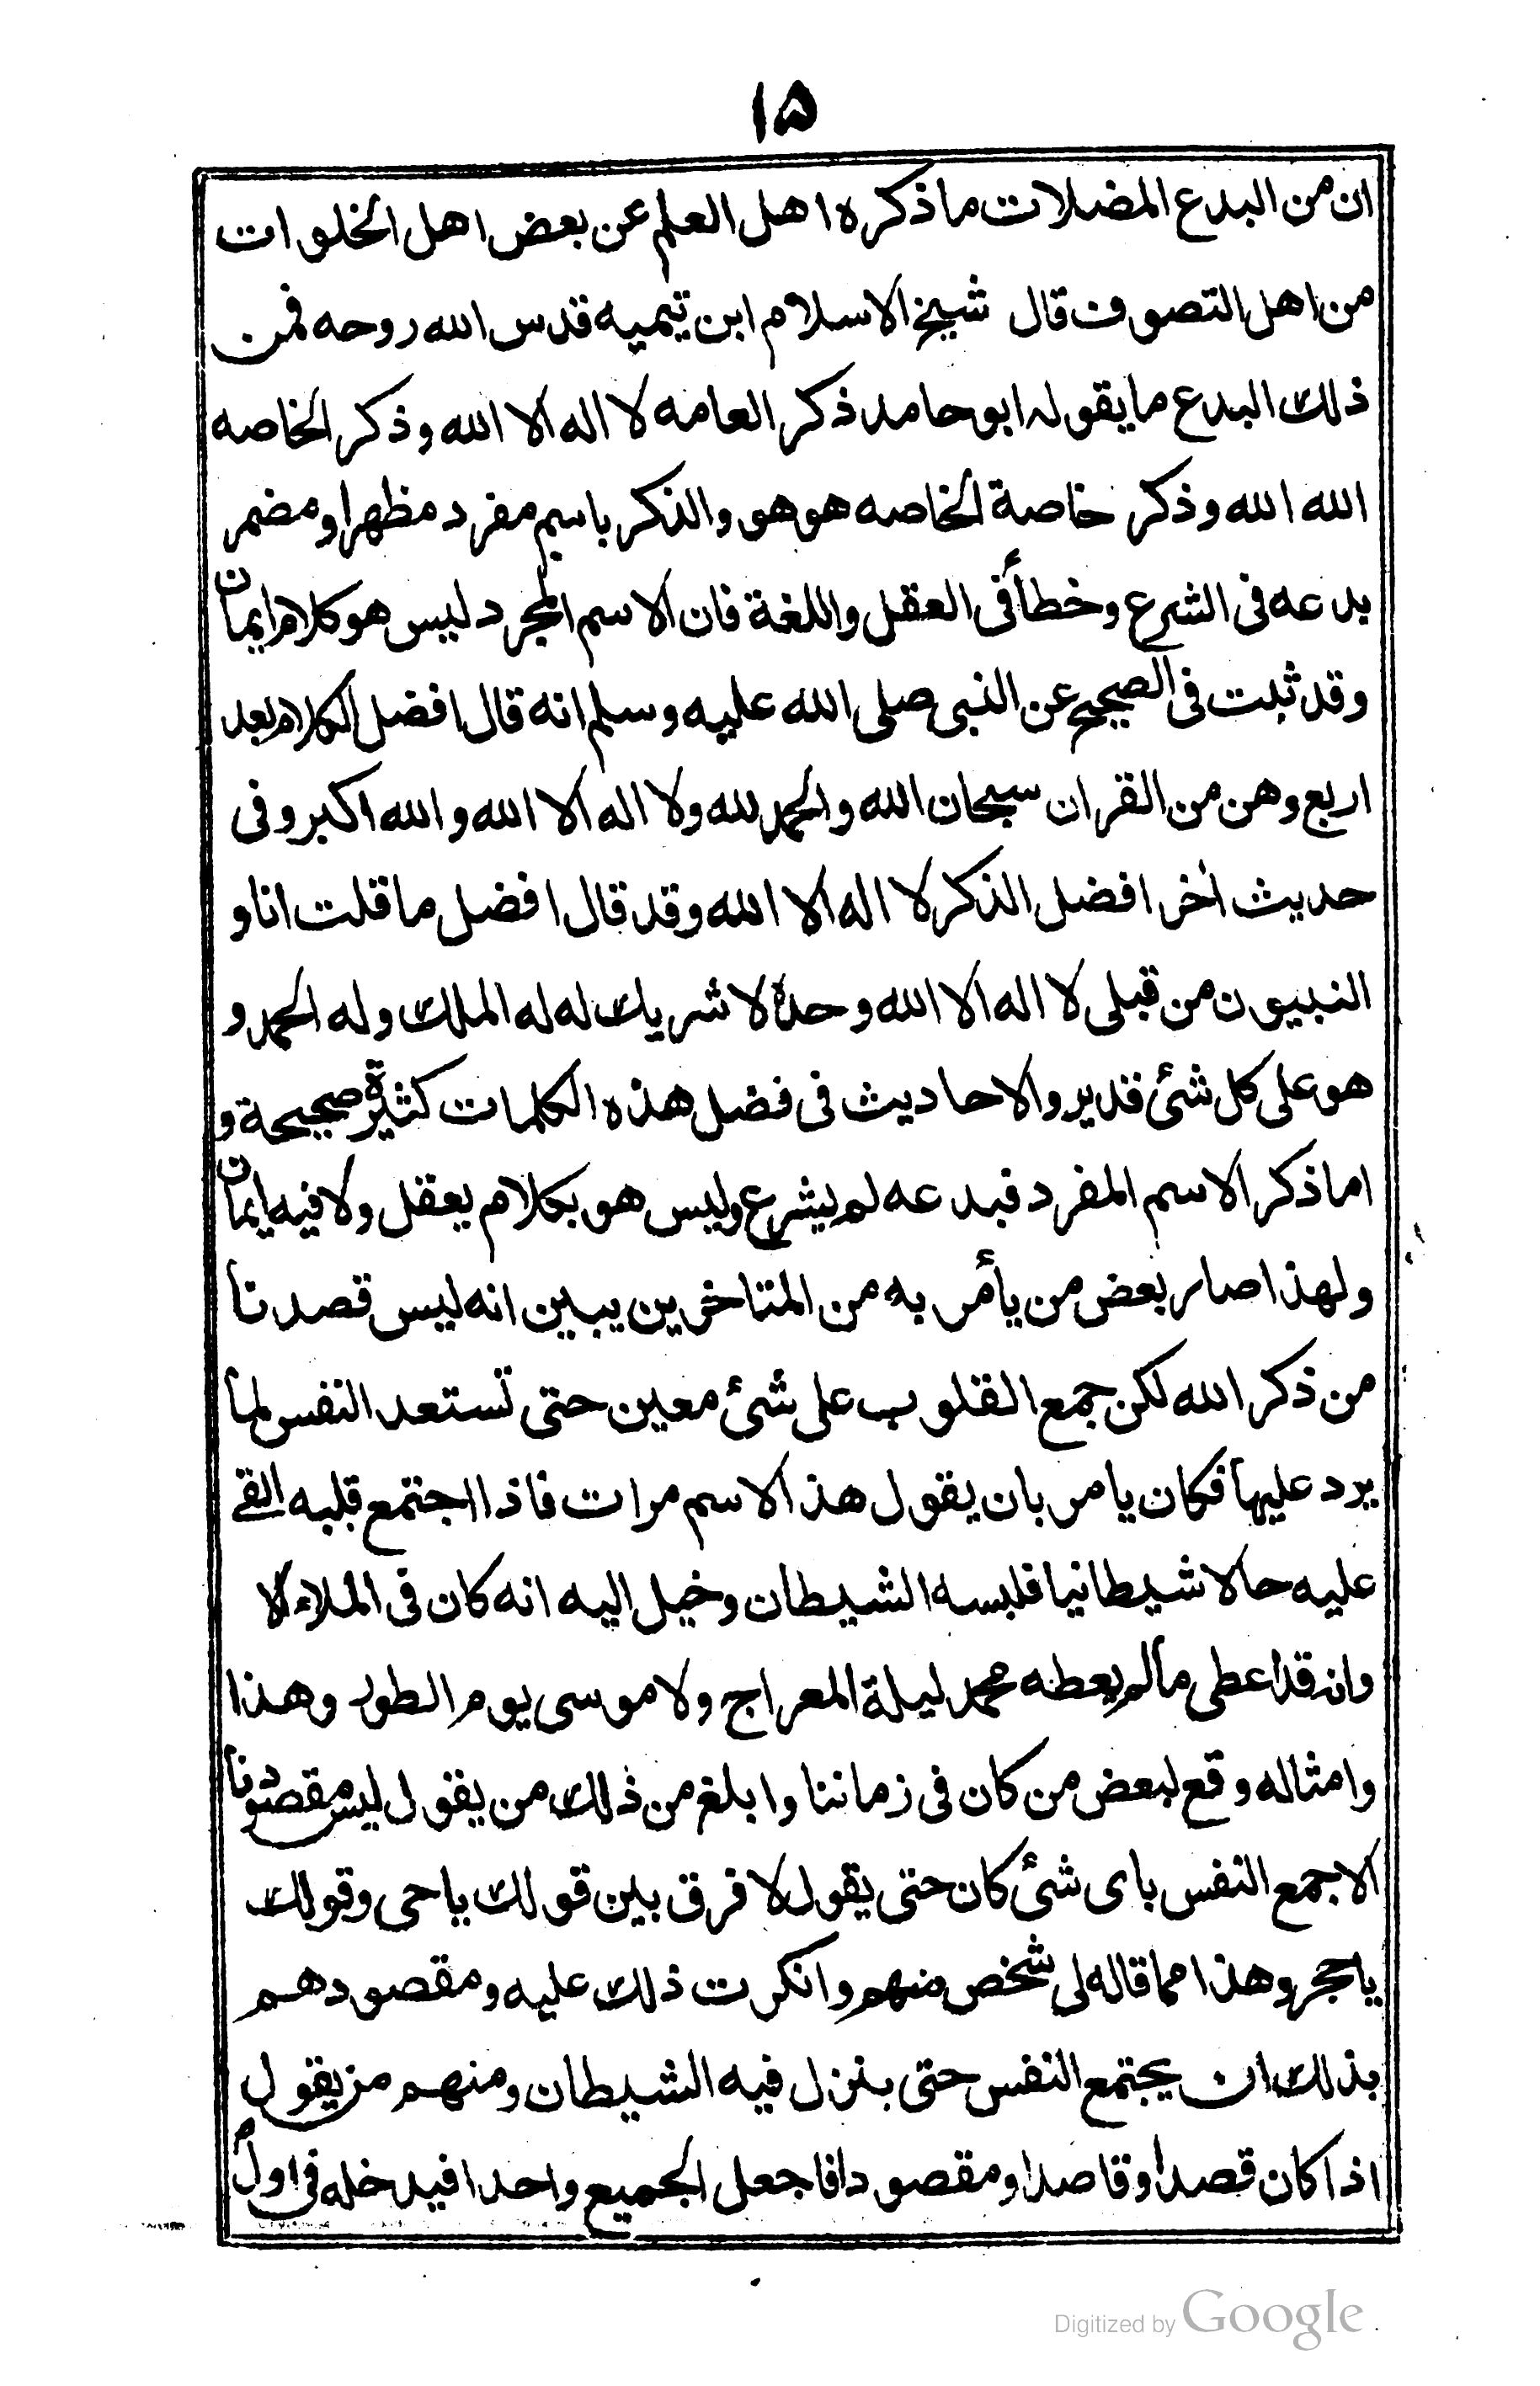 ١٥
ان من البدع المضلات ما ذكره اهل العلم عن بعض اهل الخلوات
من اهل التصوف قال شيخ الاسلام ابن تيميه قدس الله روحه فمن
ذلك البدع ما يقوله ابو حامد ذكر العامه لا اله الا الله وذكر الخاصه
الله الله وذكر خاصة الخاصه هو هو والذكر باسم مفرد مظهرا ومضمر
بدعه في الشرع وخطأ في العقل واللغة فان الاسم المجرد ليس هو كلام ايمان
وقد ثبت في الصحيح عن النبي صلى الله عليه وسلم انه قال افضل الكلام بعد
اربع وهن من القران سبحان الله والحمد لله ولا اله الا الله والله اكبر وفي
حديث اخر افضل الذكر لا اله الا الله وقد قال افضل ما قلت انا و
النبيون من قبلي لا اله الا الله وحده لا شريك له له الملك وله الحمد و
هو على كل شئ قدير والاحاديث في فضل هذه الكلمات كثيرة صحيحة و
اما ذكر الاسم المفرد فبدعه لم يشرع وليس هو بكلام يعقل ولا فيه ايمان
ولهذا صار بعض من يأمر به من المتاخرين يبين انه ليس قصدنا
من ذكر الله لكن جمع القلوب على شئ معين حتى تستعد النفس لما
يرد عليها فكان يامر بان يقول هذا الاسم مرات فاذا اجتمع قلبه القى
عليه حالا شيطانيا فلبسه الشيطان وخيل اليه انه كان في الملاء الا
وانه قد اعطى ما لم يعطه محمد ليلة المعراج ولا موسى يوم الطور وهذا
وامثاله وقع لبعض من كان في زماننا وابلغ من ذلك من يقول ليس مقصودنا
الا جمع النفس باى شئ كان حتى يقول لا فرق بين قولك يا حى وقولك
يا حجر وهذا مما قاله لي شخص منهم وانكرت ذلك عليه ومقصودهم
بذلك ان يجتمع النفس حتى ينزل فيه الشيطان ومنهم من يقول
اذا كان قصدا وقاصدا ومقصودا فاجعل الجميع واحدا فيدخله في اول
Digitized by Google